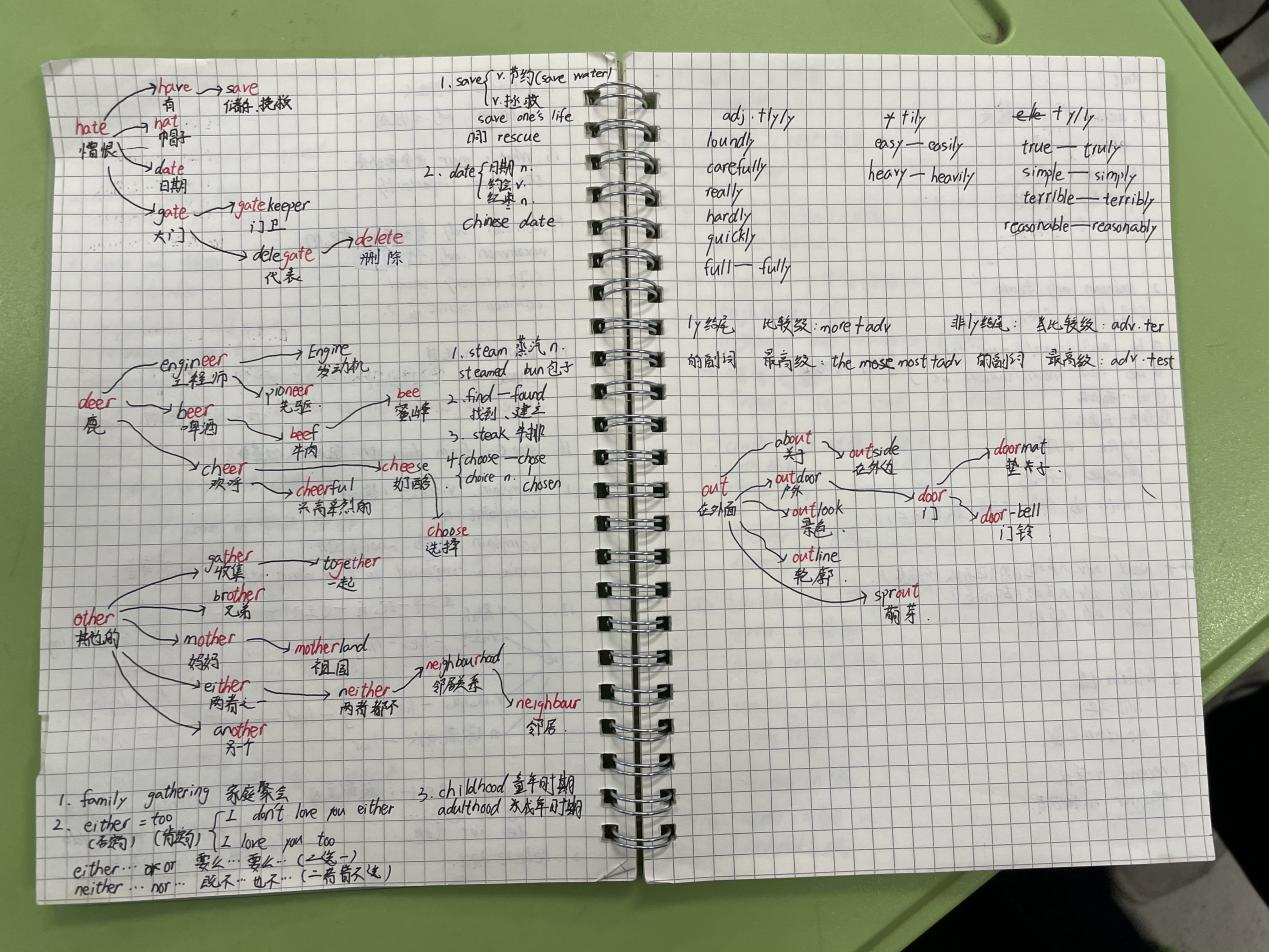 have
save
有
储存、挽救
hate
憎恨
hat
帽子
date
日期
gate
gatekeeper
大门
门卫
delegate
delete
代表
删除
1. save { v. 节约(save water)
v. 拯救
save one's life
同 rescue
2. date { 日期 n.
约会 v.
红枣 n.
chinese date
engineer
Engine
工程师
发动机
deer
鹿
pioneer
先驱
beer
bee
啤酒
蜜蜂
beef
牛肉
cheer
cheese
欢呼
奶酪
cheerful
兴高采烈的
choose
选择
1. steam 蒸汽 n.
steamed bun 包子
2. find—found
找到、建立
3. steak 牛排
4. { choose—chose
choice n. chosen
gather
together
收集
一起
brother
兄弟
other
其他的
mother
motherland
妈妈
祖国
either
neither
neighbourhod
两者之一
两者都不
邻居关系
neighbaur
邻居.
another
另一个
1. family gathering 家庭聚会
2. either = too { I don't love you either
(否定) (肯定) I love you too
either… or 要么… 要么… (二选一)
neither … nor … 既不… 也不… (二者皆不选)
3. childhood 童年时期
adulthood 成年时期
adj. +ly/y
loundly
carefully
really
hardly
quickly
full—fully
+ ily
easy—easily
heavy—heavily
ele + y/ly
true—truly
simple—simply
terrible—terribly
reasonable—reasonably
ly结尾 比较级: more + adv
的副词 最高级: the mose most + adv
非ly结尾: 比较级: adv. + er
的副词 最高级: adv. + est
about
outside
关于
在外边
out
在外面
outdoor
door
户外
门
doormat
door-bell
门铃
outlook
景色
outline
轮廓.
sprout
萌芽.